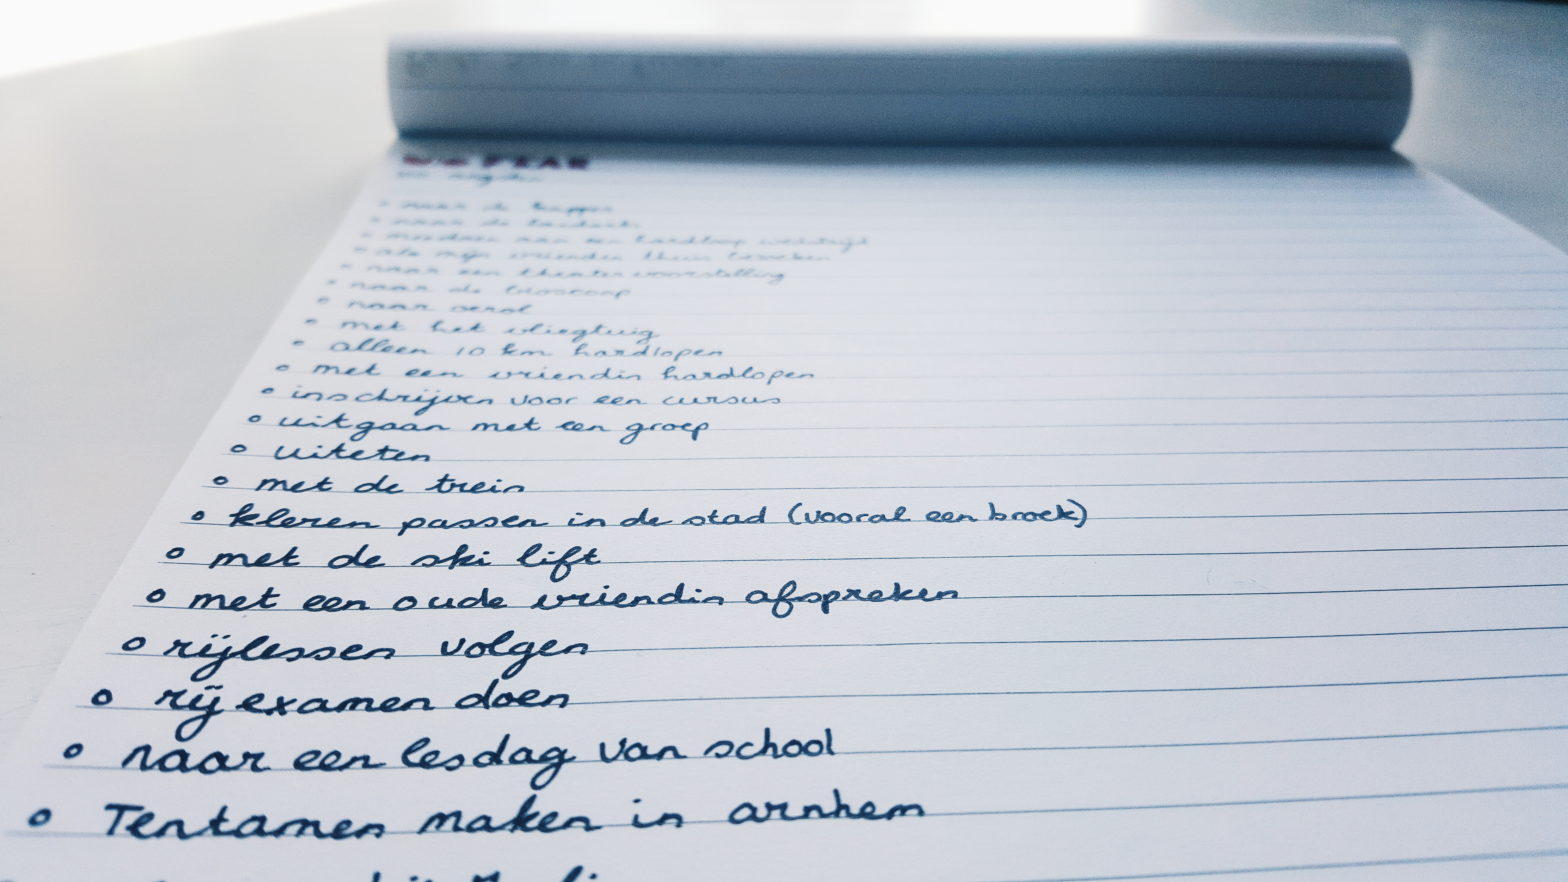 FEAR
• naar de kapper
• naar de tandarts
• meedoen aan een hardloop wedstrijd
• als mijn vrienden thuis
• naar een theatervoorstelling
• naar de bioscoop
• naar
• met het vliegtuig
• alleen 10 km hardlopen
• met een vriendin hardlopen
• inschrijven voor een cursus
• uitgaan met een groep
• uiteten
• met de trein
• kleren passen in de stad (vooral een broek)
• met de ski lift
• met een oude vriendin afspreken
• rijlessen volgen
• rij examen doen
• naar een lesdag van school
• Tentamen maken in arnhem